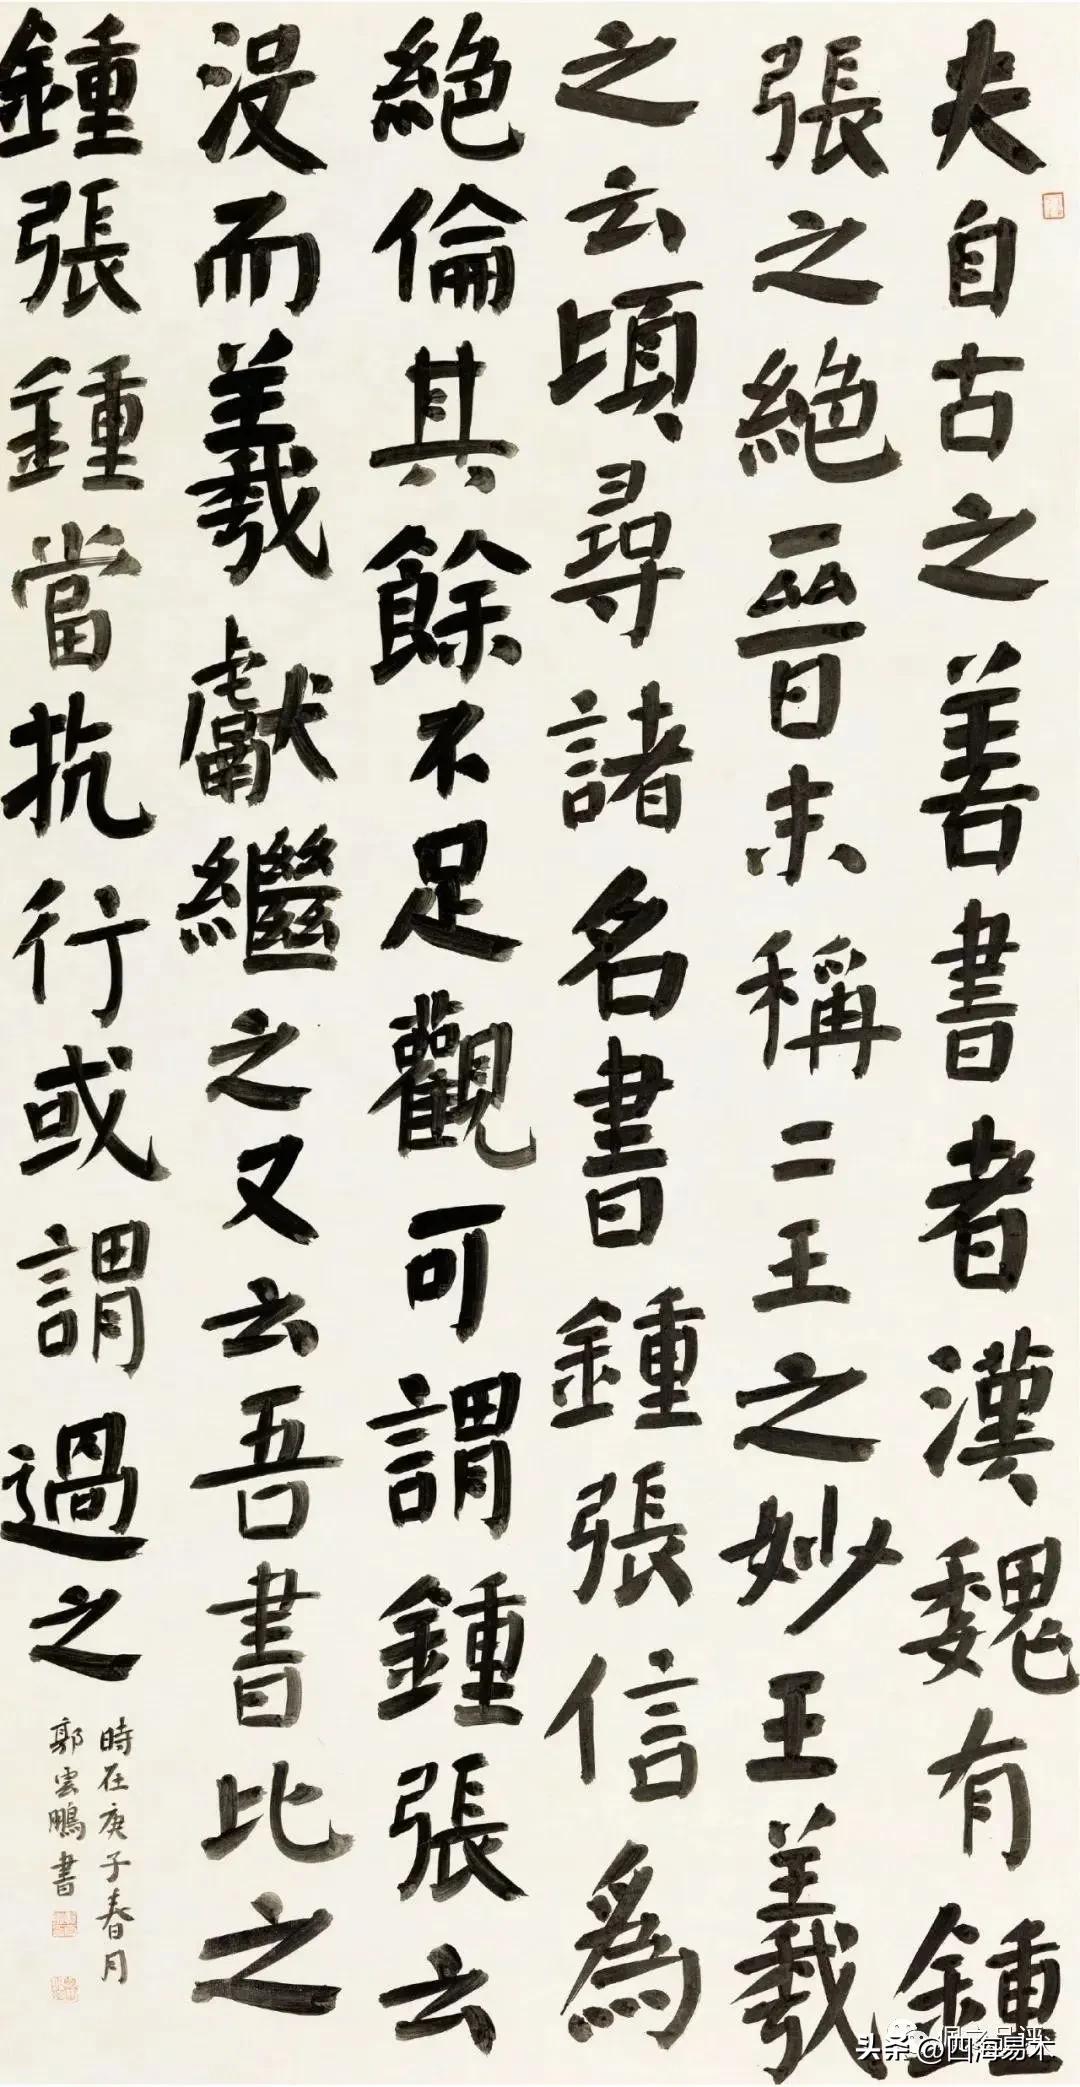 夫自古之善書者漢魏有鍾
張之絕晉末稱二王之妙王羲
之云頃尋諸名書鍾張信為
絕倫其餘不足觀可謂鍾張云
沒而羲獻繼之又云吾書比之
鍾張鍾當抗行或謂過之
時在庚子春月
郭雲鵬書
头条@四海易米